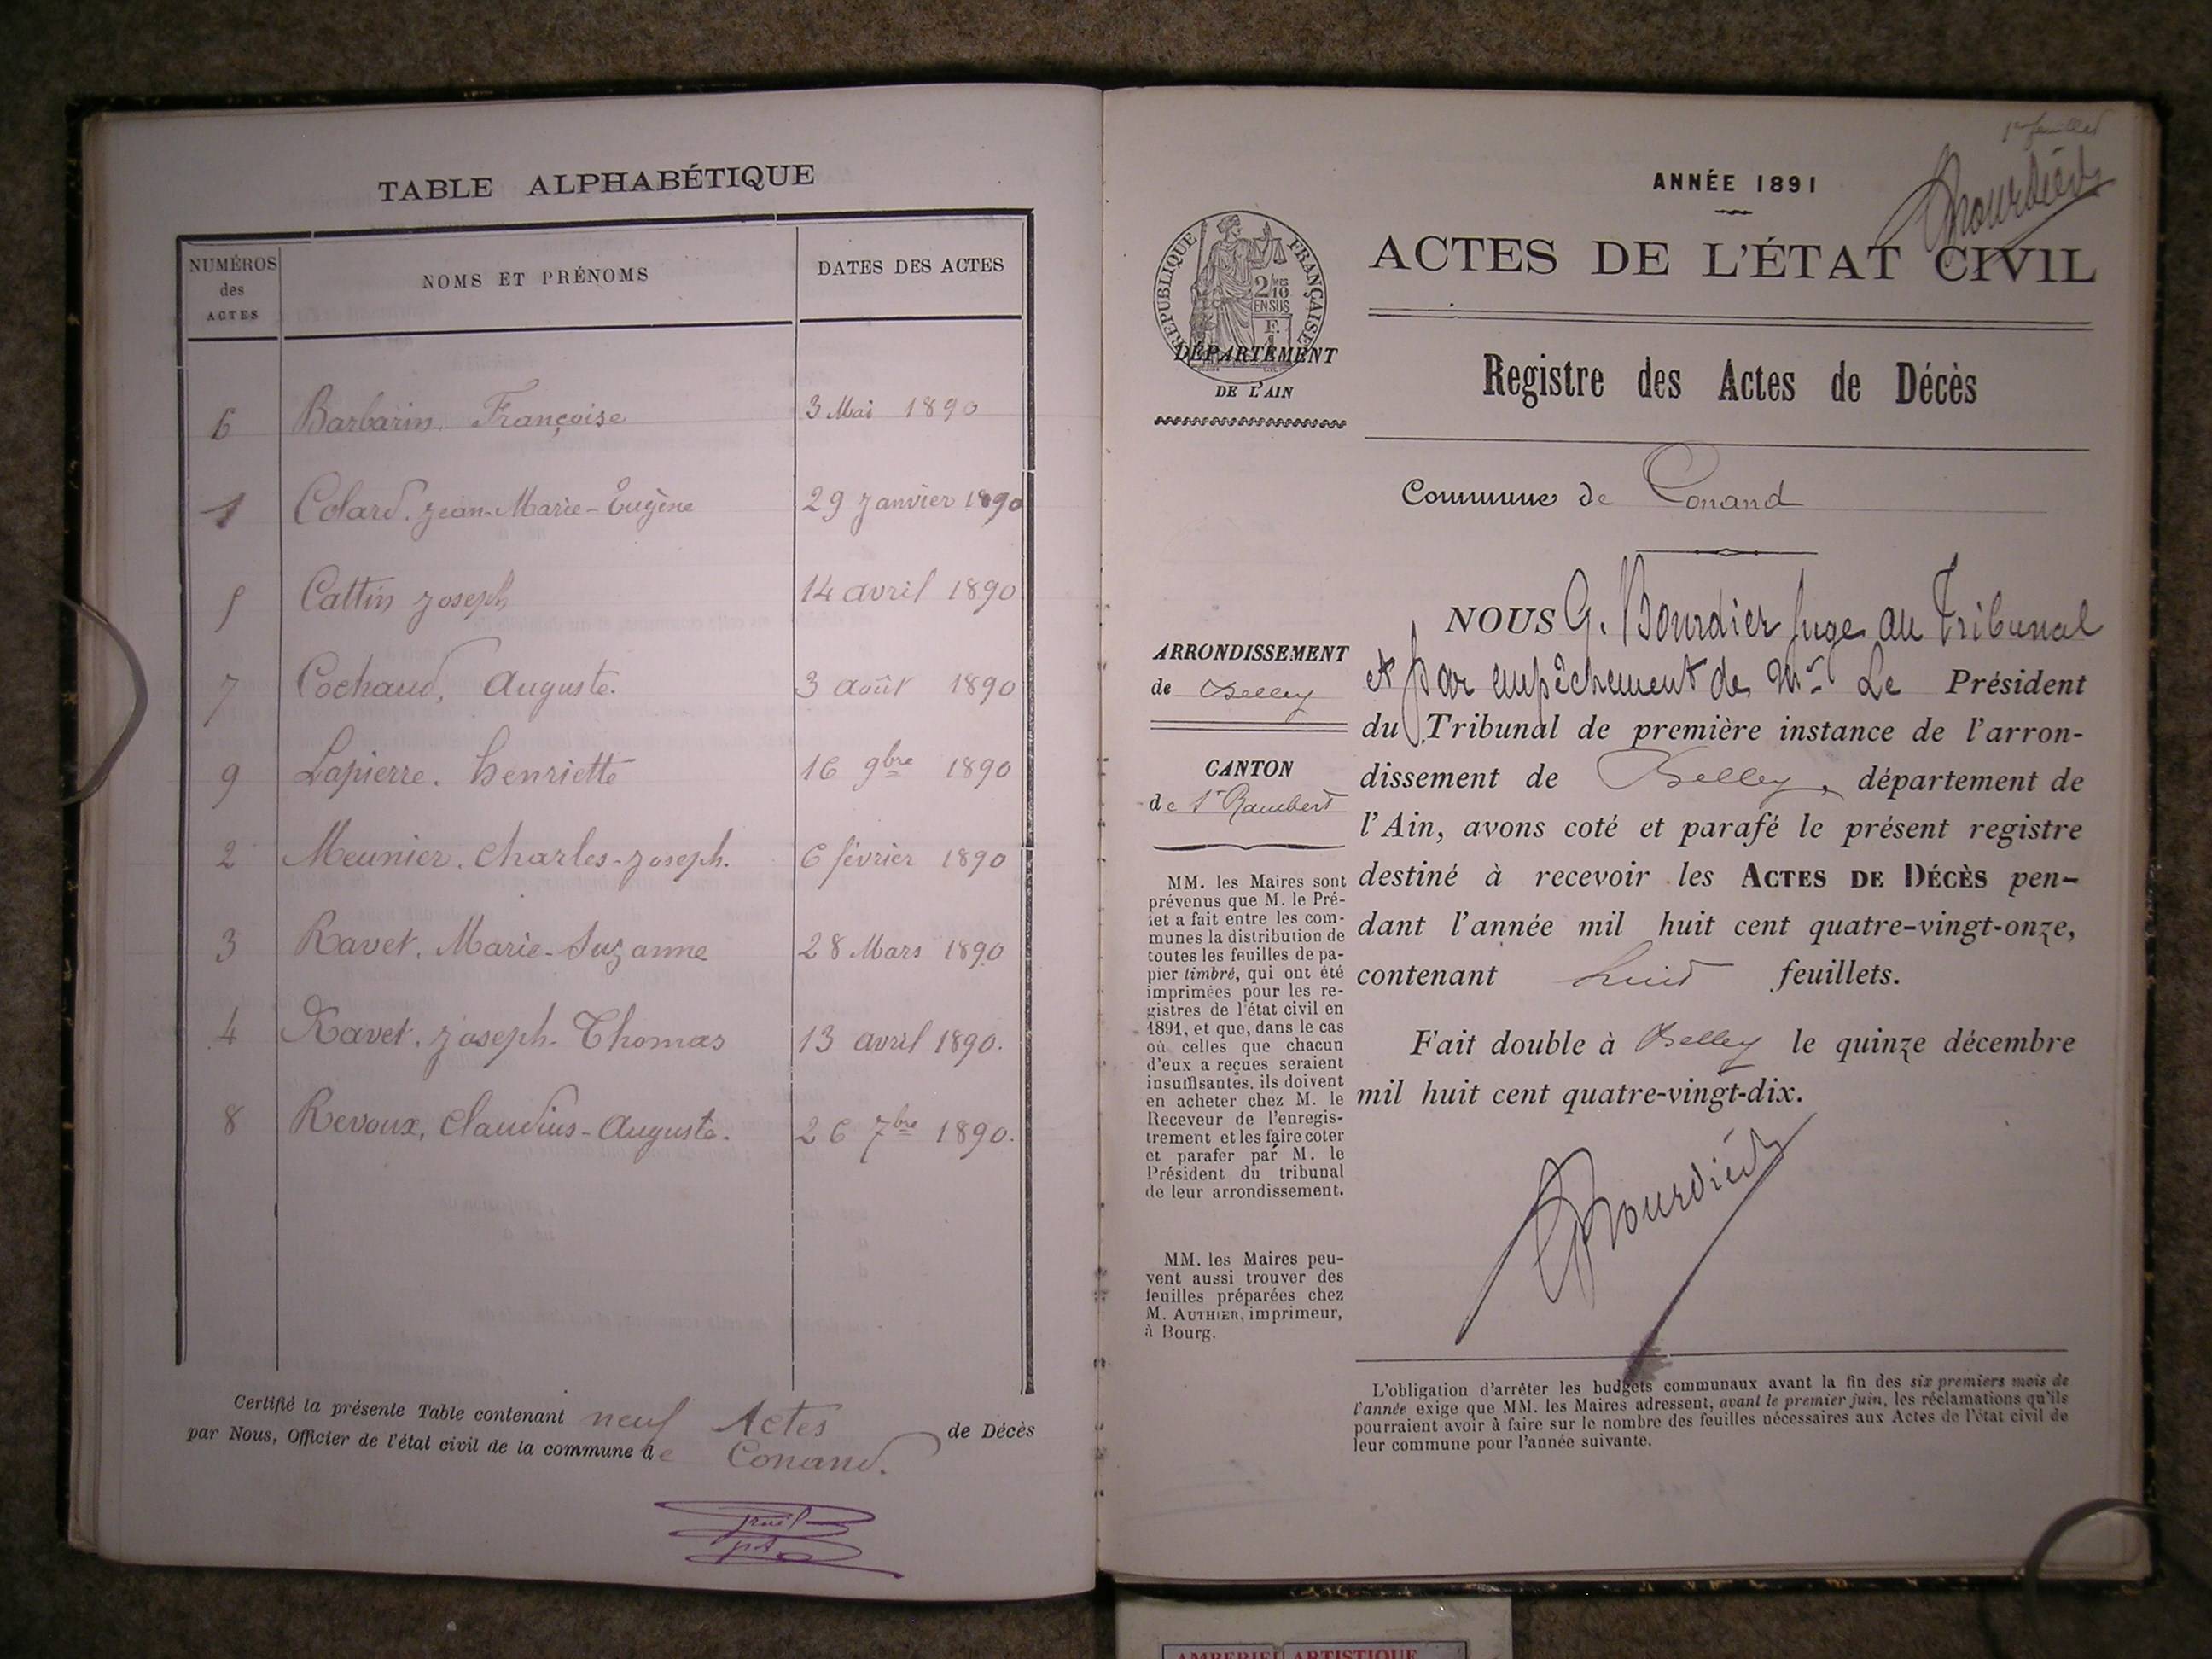 TABLE ALPHABÉTIQUE
NUMÉROS des ACTES NOMS ET PRÉNOMS DATES DES ACTES
6 Barbarin. Françoise 3 Mai 1890
1 Colard. Jean-Marie-Eugène 29 Janvier 1890
5 Cattin Joseph 14 avril 1890
7 Cochaud, Auguste. 3 août 1890
9 Lapierre. henriette 16 9bre 1890
2 Meunier. Charles-Joseph. 6 février 1890
3 Ravet. Marie-Suzanne 28 Mars 1890
4 Ravet. Joseph-Thomas 13 avril 1890.
8 Revoux, Claudius-Auguste. 26 7bre 1890.
Certifié la présente Table contenant neuf Actes de Décès
par Nous, Officier de l'état civil de la commune de Conand.
1er feuillet
Bourdier
ANNÉE 1891
ACTES DE L'ÉTAT CIVIL
RÉPUBLIQUE FRANÇAISE
2/10 EN SUS
DÉPARTEMENT
DE L'AIN
Registre des Actes de Décès
Commune de Conand
ARRONDISSEMENT
de Belley
CANTON
de St Rambert
MM. les Maires sont
prévenus que M. le Pré-
fet a fait entre les com-
munes la distribution de
toutes les feuilles de pa-
pier timbré, qui ont été
imprimées pour les re-
gistres de l'état civil en
1891, et que, dans le cas
où celles que chacun
d'eux a reçues seraient
insuffisantes, ils doivent
en acheter chez M. le
Receveur de l'enregis-
trement et les faire coter
et parafer par M. le
Président du tribunal
de leur arrondissement.
MM. les Maires peu-
vent aussi trouver des
feuilles préparées chez
M. AUTHIER, imprimeur,
à Bourg.
NOUS G. Bourdier Juge au Tribunal
et par empêchement de Mr Le Président
du Tribunal de première instance de l'arron-
dissement de Belley, département de
l'Ain, avons coté et parafé le présent registre
destiné à recevoir les ACTES DE DÉCÈS pen-
dant l'année mil huit cent quatre-vingt-onze,
contenant huit feuillets.
Fait double à Belley le quinze décembre
mil huit cent quatre-vingt-dix.
Bourdier
L'obligation d'arrêter les budgets communaux avant la fin des six premiers mois de
l'année exige que MM. les Maires adressent, avant le premier juin, les réclamations qu'ils
pourraient avoir à faire sur le nombre des feuilles nécessaires aux Actes de l'état civil de
leur commune pour l'année suivante.
AMBERIEU ARTISTIQUE